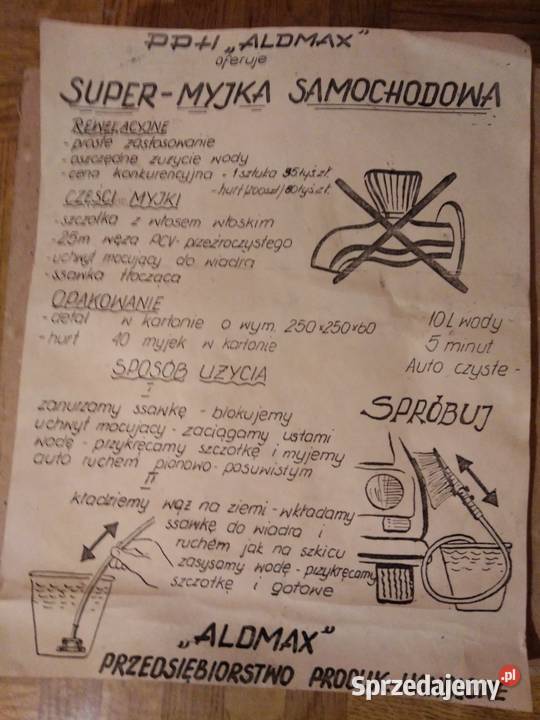 PPH „ALDMAX"
oferuje
SUPER-MYJKA SAMOCHODOWA
REWELACYJNE
- proste zastosowanie
- oszczędne zużycie wody
- cena konkurencyjna - 1 sztuka 95tyś.zł.
- hurt /200szt/ 80tyś.zł.
CZĘŚCI MYJKI
- szczotka z włosem włoskim
- 2,5m węża PCV-przeźroczystego
- uchwyt mocujący do wiadra
- ssawka tłocząca
OPAKOWANIE
- detal w kartonie o wym. 250x250x60
- hurt 40 myjek w kartonie
10 L wody -
5 minut
Auto czyste -
SPRÓBUJ
SPOSÓB UŻYCIA
I
zanurzamy ssawkę - blokujemy
uchwyt mocujacy - zaciągamy ustami
wodę - przykręcamy szczotkę i myjemy
auto ruchem pionowo-posuwistym
II
kładziemy wąż na ziemi - wkładamy
ssawkę do wiadra i
ruchem jak na szkicu
zasysamy wodę - przykręcamy
szczotkę i gotowe
„ALDMAX"
PRZEDSIĘBIORSTWO
Sprzedajemy.pl